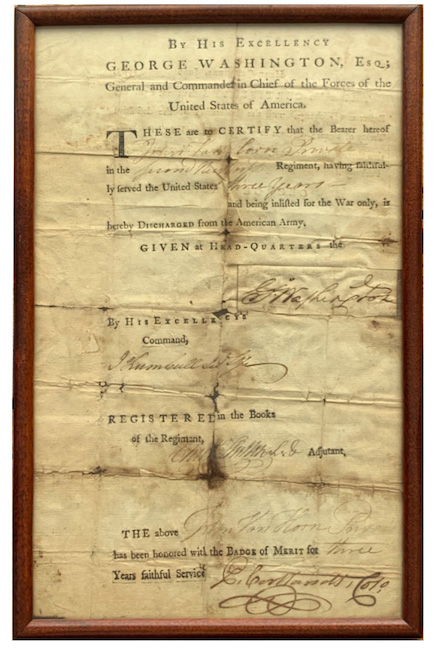 BY HIS EXCELLENCY
GEORGE WASHINGTON, Esq;
General and Commander in Chief of the Forces of the
United States of America.
THESE are to CERTIFY that the Bearer hereof
Van Horn Private
in the Second Regiment, having faithful-
ly served the United States three Years
and being inlisted for the War only, is
hereby DISCHARGED from the American Army.
GIVEN at HEAD-QUARTERS the
G. Washington
By HIS EXCELLENCY'S
Command,
REGISTERED in the Books
of the Regiment,
Adjutant,
THE above Van Horn
has been honored with the BADGE of MERIT for three
Years faithful Service P. Cortlandt, Colo